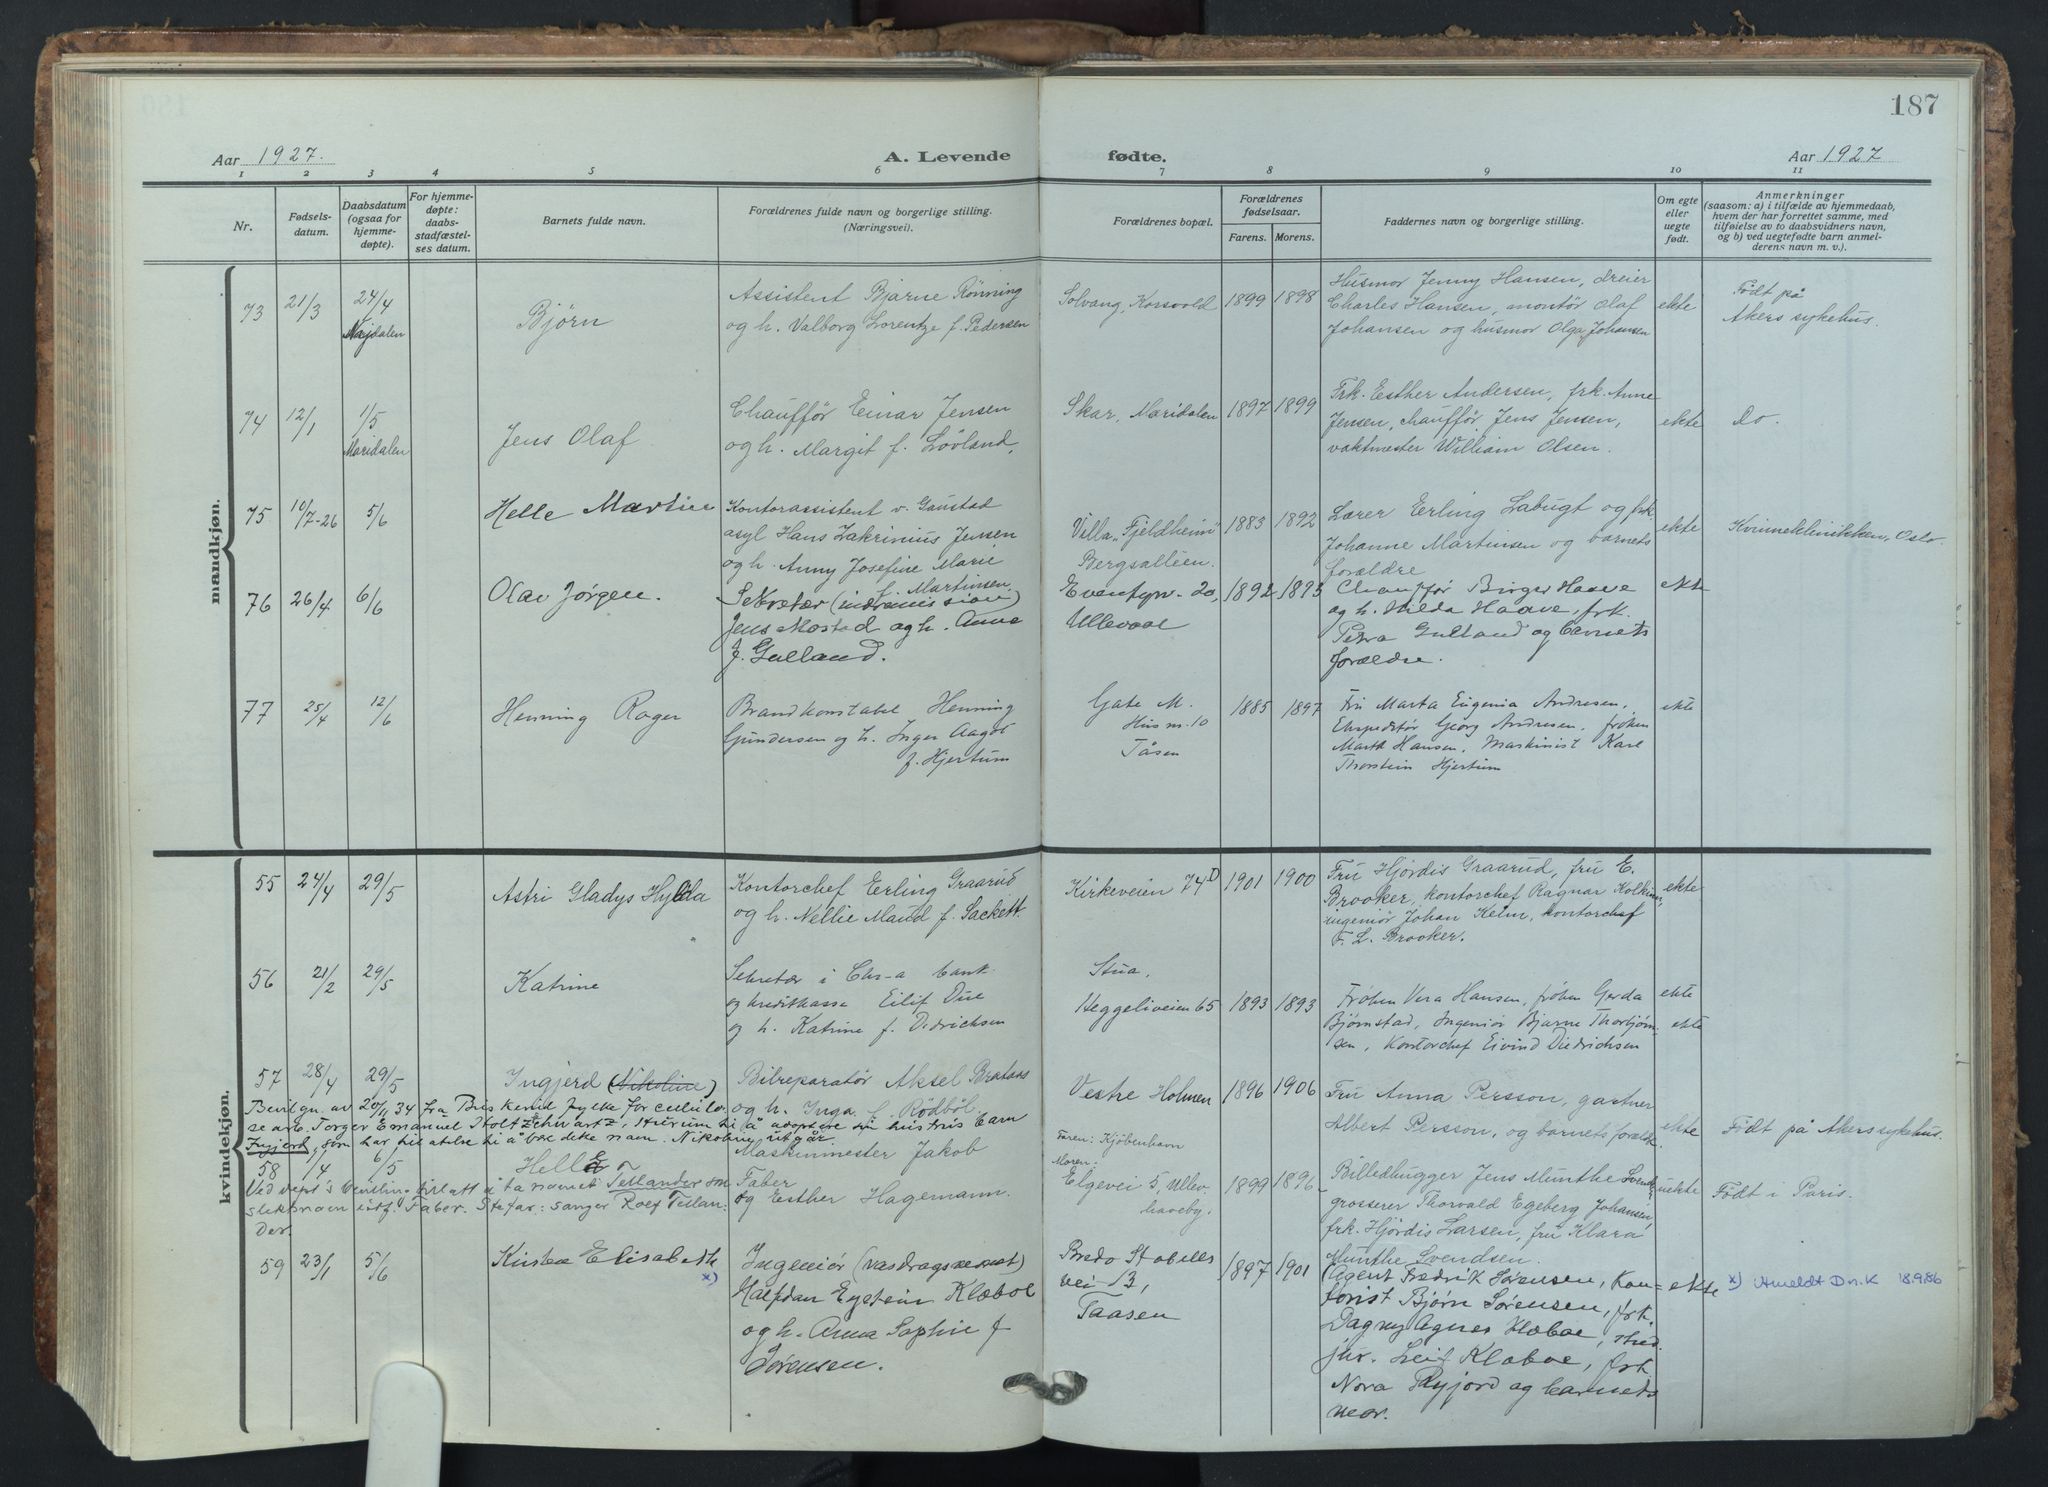 187
Aar 1927.
A. Levende
fødte.
Aar 1927
1 2 3 4 5 6 7 8 9 10 11
Nr.
Fødsels-
datum.
Daabsdatum
(ogsaa for
hjemme-
døpte).
For hjemme-
døpte:
daabs-
stadfæstel-
ses datum.
Barnets fulde navn.
Forældrenes fulde navn og borgerlige stilling.
(Næringsvei).
Forældrenes bopæl.
Forældrenes
fødselsaar.
Farens. Morens.
Faddernes navn og borgerlige stilling.
Om egte
eller
uegte
født.
Anmerkninger
(saasom: a) i tilfælde av hjemmedaab,
hvem der har forrettet samme, med
tilføielse av to daabsvidners navn,
og b) ved uegtefødte barn anmel-
derens navn m. v.).
mandkjøn.
73 21/3 24/4
Maridalen
Bjørn
Assistent Bjarne Rønning
og h. Valborg Lorentze f. Pedersen
Solvang, Korsvold
1899 1898
Husmor Jenny Hansen, dreier
Charles Hansen, montør Olaf
Johansen og husmor Olga Johansen
ekte
Født på
Akers sykehus.
74 12/1 1/5
Maridalen
Jens Olaf
Chauffør Einar Jensen
og h. Margit f. Løvland,
Skar, Maridalen
1897 1899
Frk. Esther Andersen, frk. Anne
Jensen, chauffør Jens Jensen,
vaktmester William Olsen.
ekte
do.
75 10/7-26 5/6
Helle Martin
Kontorassistent v. Gaustad
asyl Hans Zakrinius Jensen
og h. Anny Josefine Marie
f. Martinsen
Villa „Fjeldheim"
Bergsalléen.
1883 1892
Lærer Erling Labugt og frk.
Johanne Martinsen og barnets
forældre
ekte
Kvinneklinikken, Oslo.
76 26/4 6/6
Olav Jørgen.
Sekretær (indremission)
Jens Mostad og h. Anna
f. Gulland.
Eventyrv. 20,
Ullevaal
1892 1893
Chauffør Birger Haave
og h. Hilda Haave, frk.
Petra Gulland og barnets
forældre.
ekte
77 25/4 12/6
Henning Roger
Brandkonstabel Henning
Gundersen og h. Inger Aagot
f. Hjertum
Gate M.
Hus nr. 10
Tåsen
1885 1897
Fru Marta Eugenia Andresen,
Ekspeditør Georg Andresen, frøken
Marth Hansen, Maskinist Karl
Thorstein Hjertum
ekte
kvindekjøn.
55 24/4 29/5
Astri Gladys Hylda
Kontorchef Erling Graarud
og h. Nellie Maud f. Sackett.
Kirkeveien 74D
1901 1900
Fru Hjørdis Graarud, fru E.
Brooker, kontorchef Ragnar Kolkinn,
ingeniør Johan Kelm, kontorchef
F. L. Brooker.
ekte
56 21/2 29/5
Katrine
Sekretær i Chr-a bank
og kreditkasse Eilif Due
og h. Katrine f. Didrichsen
Stua,
Heggeliveien 65
1893 1893
Frøken Vera Hansen, frøken Gerda
Bjørnstad, Ingeniør Bjarne Thorbjørn-
sen, Kontorchef Eivind Diedrichsen
ekte
ekte
57 28/4 29/5
Ingjerd (Nikoline)
Bilreparatør Aksel Brataas
og h. Inga f. Rødbøl.
Vestre Holmen
1896 1906
Fru Anna Persson, gartner
Albert Persson, og barnets forældre
ekte
Født på Akers sykehus.
Bevilgn. av 20/11 34 fra Buskerud fylke for cellulo
se arb. Torger Emanuel Stoltz Schwartz, Hurum til å adoptere sin hustrus barn
Ingjerd, som har tillatelse til å bære dette navn. Nikoline utgår.
58 /4 6/5
Helle
Maskinmester Jakob
Faber
og Esther Hagemann.
Faren: Kjøbenhavn
Moren:
Elgevei 5, Ullev.
haveby.
1899 1896
Billedhugger Jens Munthe Svend-
grosserer Thorvald Egeberg Johansen,
frk. Hjørdis Larsen, fru Klara
Munthe Svendsen.
uekte
Født i Paris.
Ved tillatt å ta navnet Teslander som
slektsnavn istf. Faber. Stefar: sanger Rolf Teslan-
der.
59 23/1 5/6
Kirsten Elisabeth
x)
Ingeniør (vasdragsvesenet)
Halfdan Eystein Klæboe
og h. Anna Sophie f.
Sørensen.
Bredo Stabells
vei 13,
Taasen
1897 1901
Agent Fredrik Sørensen, Kon-
torist Bjørn Sørensen, frk.
Dagny Agnes Klæboe, stud.
jur. Leif Klæboe, frk.
Nora Ryjord og barnets
mor.
ekte
x) Utmeldt D.n.K 18.9.86